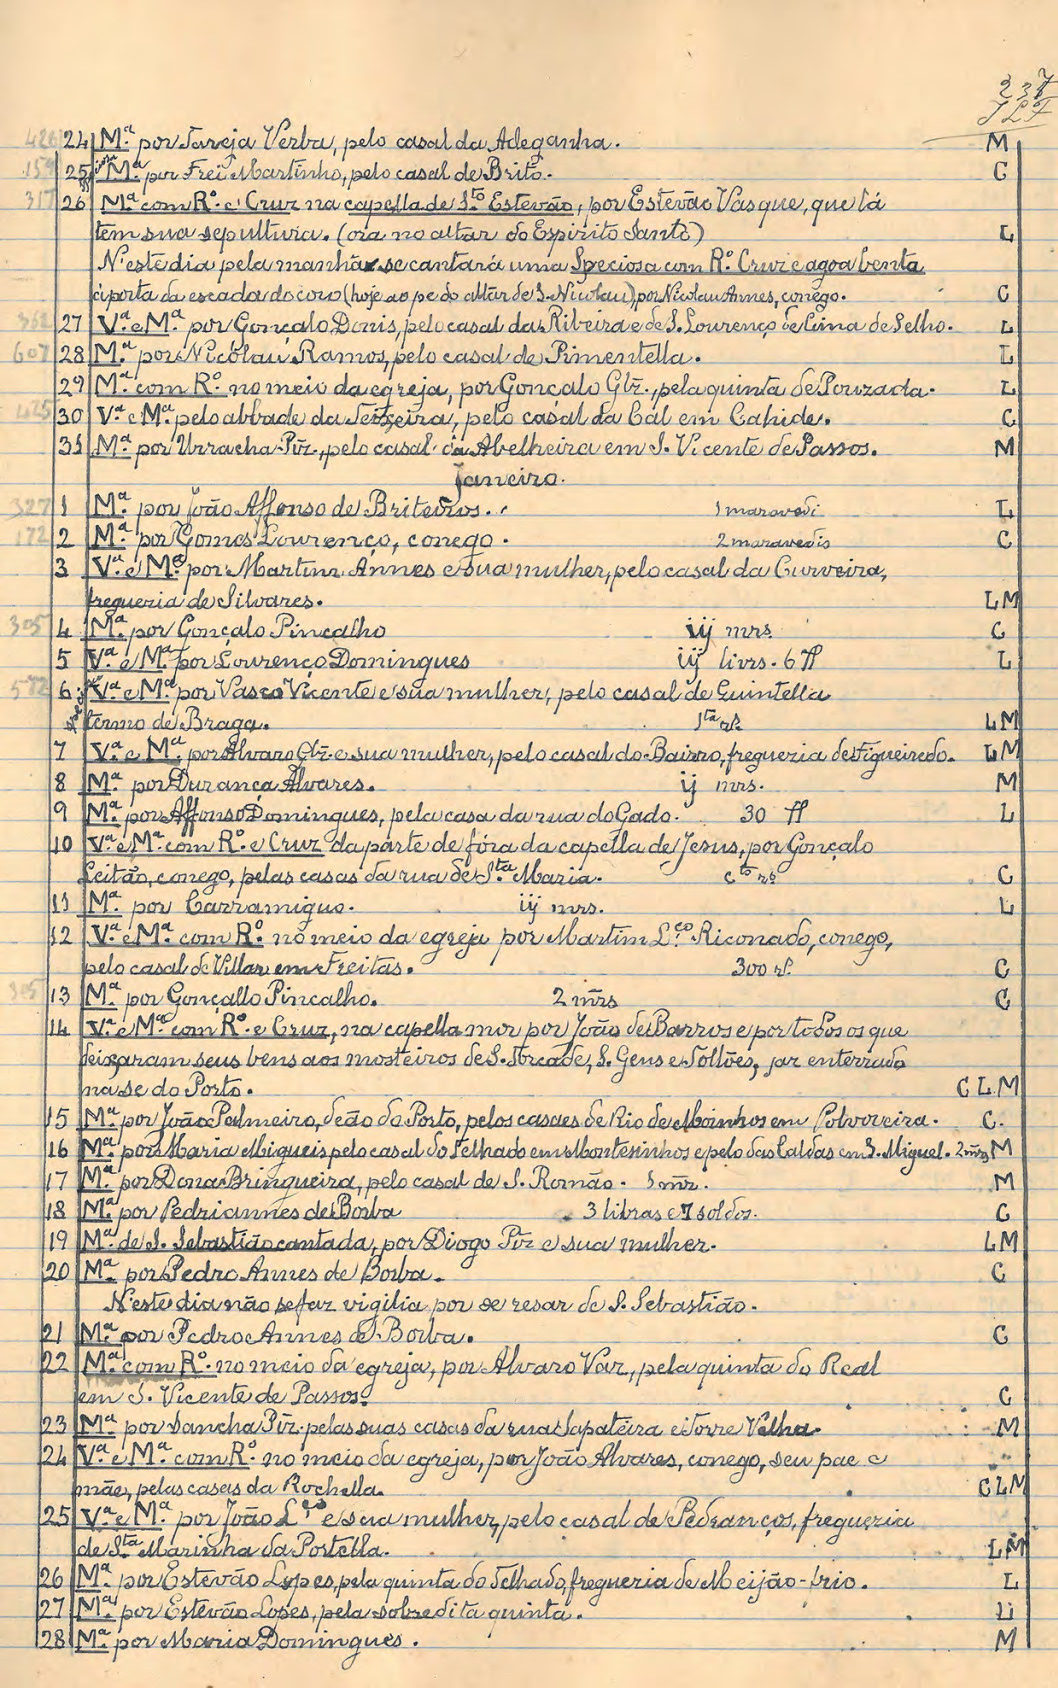 237
426 24 M.ª por Tareja Verba, pelo casal da Adeganha. M
159 25 M.ª por Frei Martinho, pelo casal de Brito. C
317 26 M.ª com R.º e Cruz na capella de S.to Estevão, por Estevão Vasque, que lá
tem sua sepultura. (ora no altar do Espirito Santo) L
N'este dia pela manhã se cantará uma Speciosa com R.º Cruz e agoa benta
á porta da escada do coro (hoje ao pe do altar de S. Nicolau), por Nicolau Annes, conego. C
368 27 V.ª e M.ª por Gonçalo Donis, pelo casal da Ribeira e de S. Lourenço de Cima de Selho. L
607 28 M.ª por Nicolau Ramos, pelo casal de Pimentella. L
29 M.ª com R.º no meio da egreja, por Gonçalo Glz., pela quinta de Pouzada. L
425 30 V.ª e M.ª pelo abbade da Teixeira, pelo casal da Cal em Cahide. C
31 M.ª por Urracha Piz., pelo casal da Abelheira em S. Vicente de Passos. M
Janeiro.
327 1 M.ª por João Affonso de Briteiros. 1 maravedi L
172 2 M.ª por Gomes Lourenço, conego. 2 maravedis C
3 V.ª e M.ª por Martim Annes e sua mulher, pelo casal da Curveira,
freguezia de Silvares. L M
305 4 M.ª por Gonçalo Pincalho iij mrs. C
5 V.ª e M.ª por Lourenço Domingues iij livrs. 6 ff L
572 6 V.ª e M.ª por Vasco Vicente e sua mulher, pelo casal de Quintella
termo de Braga. L M
7 V.ª e M.ª por Alvaro Glz. e sua mulher, pelo casal do Bairro, freguezia de Figueiredo. L M
8 M.ª por Durança Alvares. ij mrs. M
9 M.ª por Affonso Domingues, pela casa da rua do Gado. 30 ff L
10 V.ª e M.ª com R.º e Cruz da parte de fóra da capella de Jesus, por Gonçalo
Leitão, conego, pelas casas da rua de S.ta Maria. C
11 M.ª por Carramiguo. iij mrs. L
12 V.ª e M.ª com R.º no meio da egreja por Martim L.ço Riconado, conego,
pelo casal de Villar em Freitas. 300 rl. C
305 13 M.ª por Gonçallo Pincalho. 2 mrs C
14 V.ª e M.ª com R.º e Cruz, na capella mor por João de Barros e por todos os que
deixaram seus bens aos mosteiros de S. Torcade, S. Gens e Tollões, jaz enterrado
na se do Porto. C L M
15 M.ª por João Palmeiro, deão do Porto, pelos casaes de Rio de Moinhos em Polvoreira. C.
16 M.ª por Maria Migueis pelo casal do Telhado em Montesinhos e pelo das Caldas em S. Miguel. 2 mrs M
17 M.ª por Dona Bringueira, pelo casal de S. Romão. 1 mr. M
18 M.ª por Pedriannes de Borba 3 libras e 7 soldos. C
19 M.ª de S. Sebastião cantada, por Diogo Piz e sua mulher. L M
20 M.ª por Pedro Annes de Borba. C
N'este dia não se faz vigilia por se resar de S. Sebastião.
21 M.ª por Pedro Annes de Borba. C
22 M.ª com R.º no meio da egreja, por Alvaro Vaz, pela quinta do Real
em S. Vicente de Passos. C
23 M.ª por Sancha Piz. pelas suas casas da rua Sapateira e Torre Velha. M
24 V.ª e M.ª com R.º no meio da egreja, por João Alvares, conego, seu pae e
mãe, pelas casas da Rochella. C L M
25 V.ª e M.ª por João L.ço e sua mulher, pelo casal de Pedranços, freguezia
de S.ta Marinha da Portella. L M
26 M.ª por Estevão Lopes, pela quinta do Telhado, freguezia de Meijão-frio. L
27 M.ª por Estevão Lopes, pela sobredita quinta. Li
28 M.ª por Maria Domingues. M